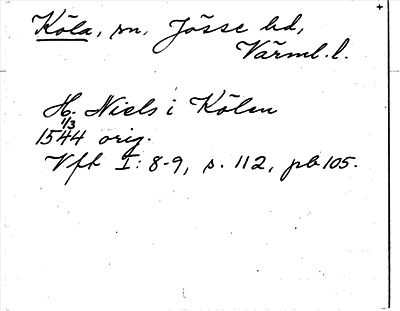 Köla, sn, Jösse hd,
Värml. l.
H. Niels i Kölen
1/3
1544 orig.
Vfk I: 8-9, s. 112, pb 105.